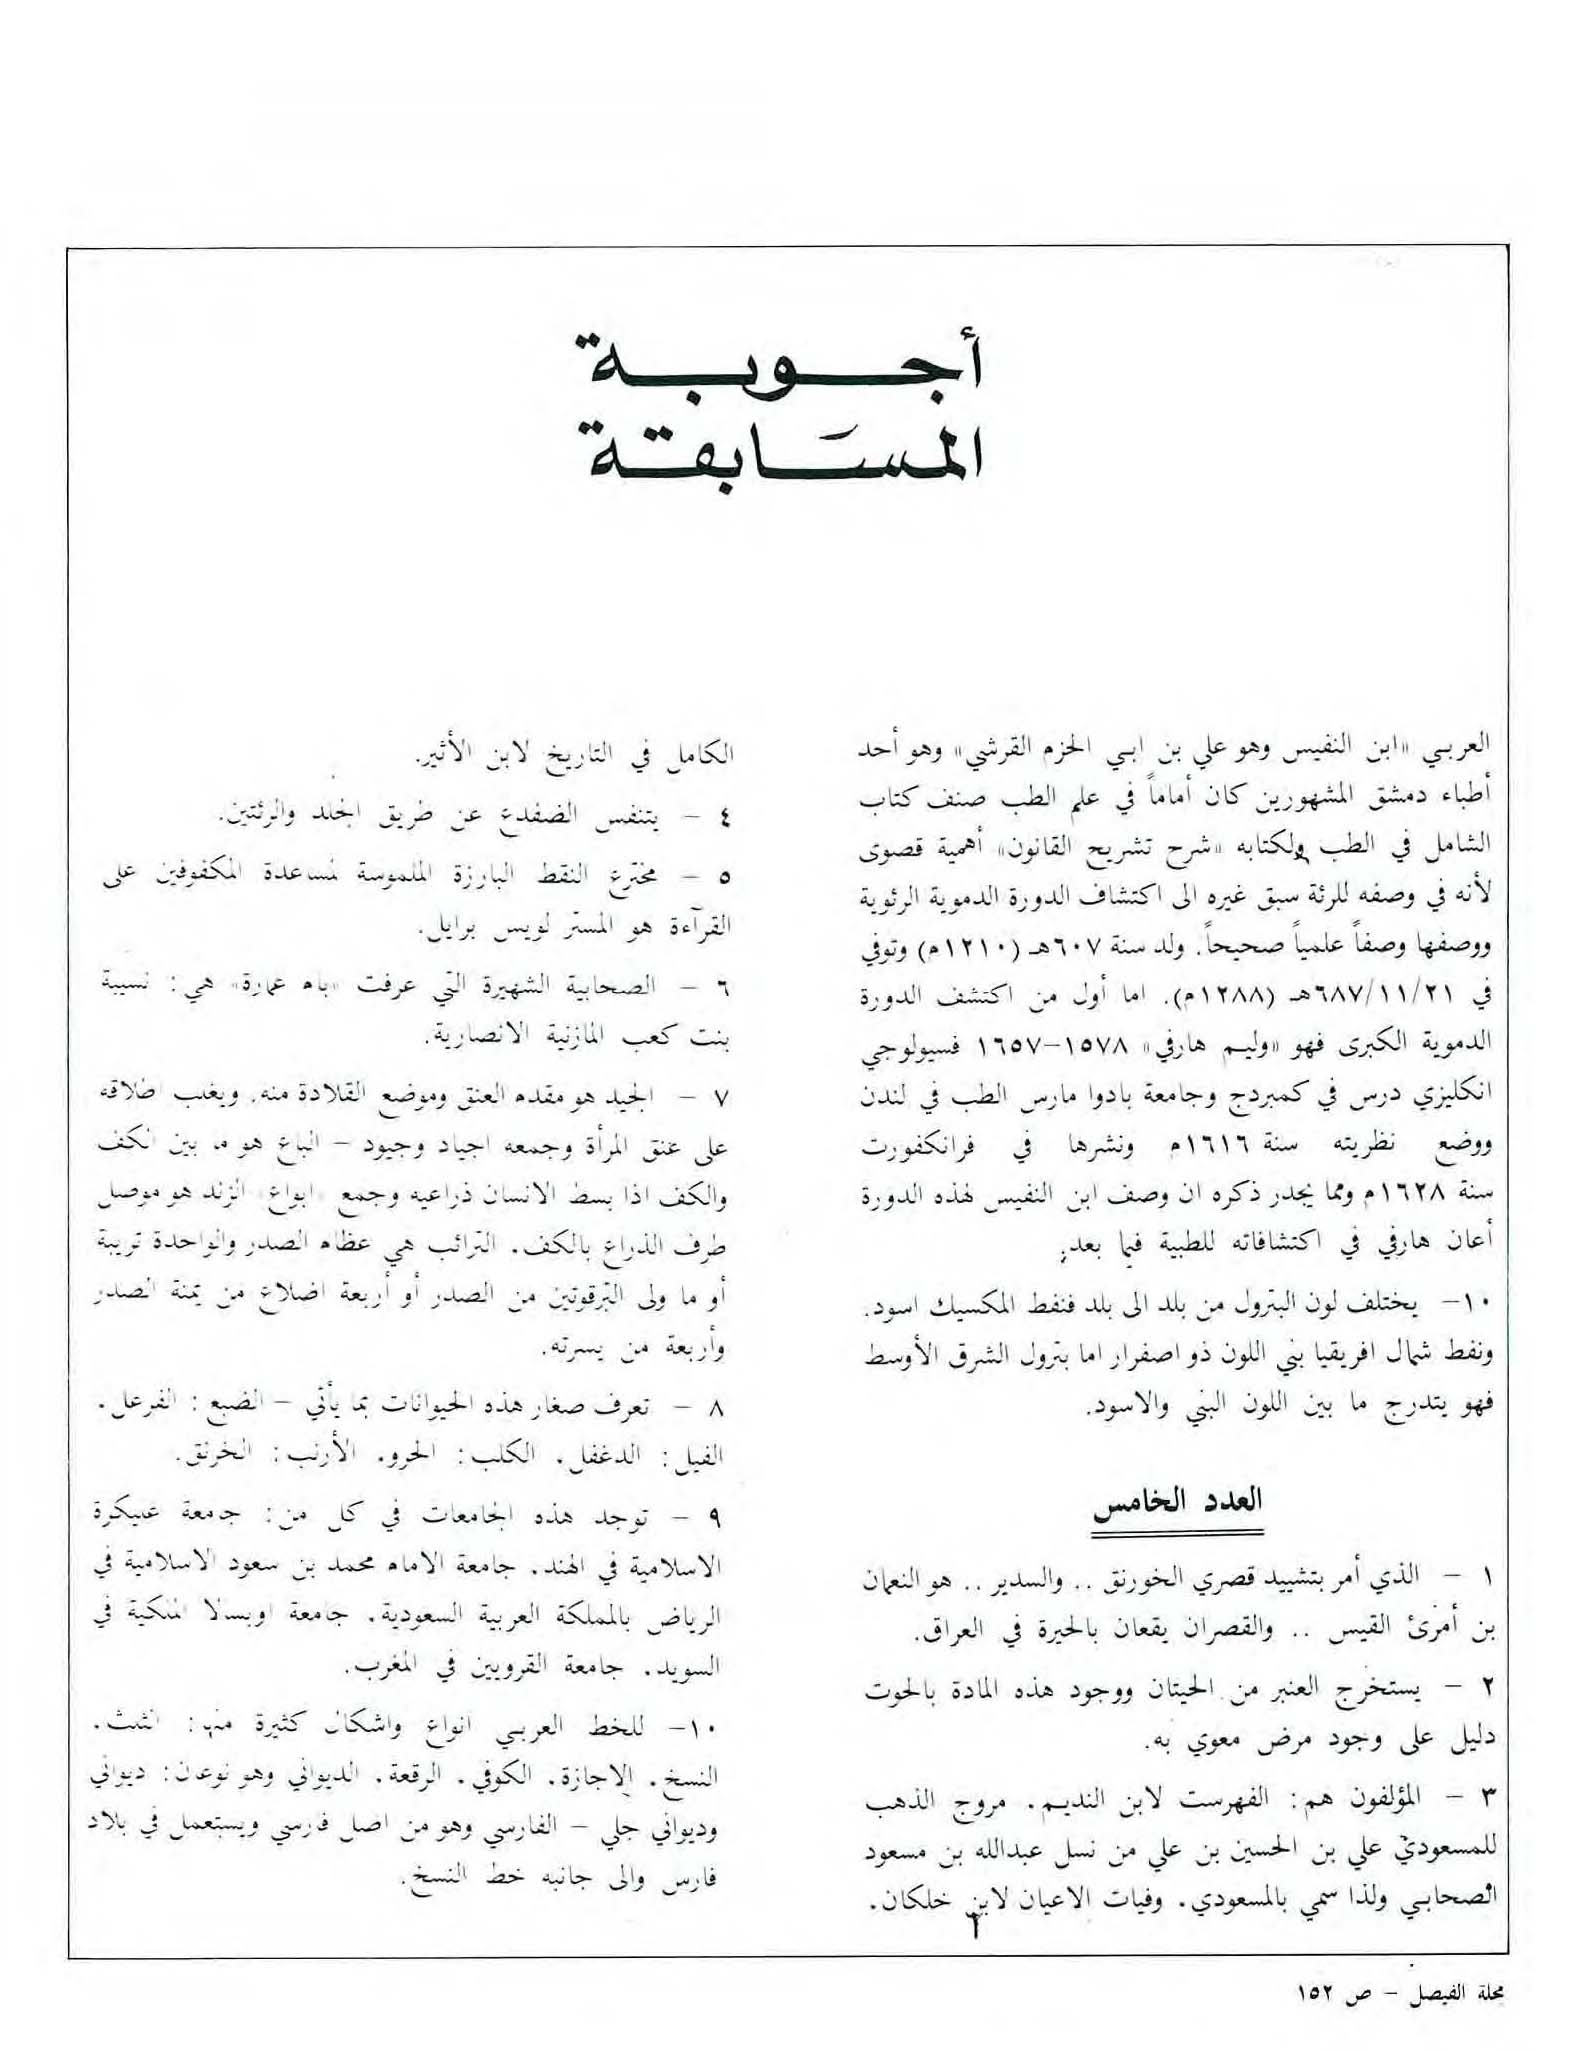 أجوبة
المسابقة
العربي «ابن النفيس وهو علي بن ابي الحزم القرشي» وهو أحد
أطباء دمشق المشهورين كان أماماً في علم الطب صنف كتاب
الشامل في الطب ولكتابه «شرح تشريح القانون» أهمية قصوى
لأنه في وصفه للرئة سبق غيره الى اكتشاف الدورة الدموية الرئوية
ووصفها وصفاً علمياً صحيحاً. ولد سنة ٦٠٧هـ (١٢١٠م) وتوفي
في ٦٨٧/١١/٢١هـ (١٢٨٨م). اما أول من اكتشف الدورة
الدموية الكبرى فهو «وليم هارفي» ١٥٧٨-١٦٥٧ فسيولوجي
انكليزي درس في كمبردج وجامعة بادوا مارس الطب في لندن
ووضع نظريته سنة ١٦١٦م ونشرها في فرانكفورت
سنة ١٦٢٨م ومما يجدر ذكره ان وصف ابن النفيس لهذه الدورة
أعان هارفي في اكتشافاته للطبية فيما بعد.
١٠- يختلف لون البترول من بلد الى بلد فنفط المكسيك اسود.
ونفط شمال افريقيا بني اللون ذو اصفرار اما بترول الشرق الأوسط
فهو يتدرج ما بين اللون البني والاسود.
العدد الخامس
١ - الذي أمر بتشييد قصري الخورنق .. والسدير .. هو النعمان
بن أمرئ القيس .. والقصران يقعان بالحيرة في العراق.
٢ - يستخرج العنبر من الحيتان ووجود هذه المادة بالحوت
دليل على وجود مرض معوي به.
٣ - المؤلفون هم: الفهرست لابن النديم. مروج الذهب
للمسعودي علي بن الحسين بن علي من نسل عبدالله بن مسعود
الصحابي ولذا سمي بالمسعودي. وفيات الاعيان لابن خلكان.
الكامل في التاريخ لابن الأثير.
٤ - يتنفس الضفدع عن طريق الجلد والرئتين.
٥ - مخترع النقط البارزة الملموسة لمساعدة المكفوفين على
القرآءة هو المستر لويس برايل.
٦ - الصحابية الشهيرة التي عرفت «بام عمارة» هي: نسيبة
بنت كعب المازنية الانصارية.
٧ - الجيد هو مقدم العنق وموضع القلادة منه. ويغلب اطلاقه
على عنق المرأة وجمعه اجياد وجيود - الباع هو ما بين الكف
والكف اذا بسط الانسان ذراعيه وجمع «ابواع» الزند هو موصل
طرف الذراع بالكف. الترائب هي عظام الصدر والواحدة تريبة
أو ما ولى الترقوتين من الصدر أو أربعة اضلاع من يمنة الصدر
وأربعة من يسرته.
٨ - تعرف صغار هذه الحيوانات بما يأتي - الضبع: الفرعل.
الفيل: الدغفل. الكلب: الجرو. الأرنب: الخرنق.
٩ - توجد هذه الجامعات في كل من: جامعة عليكرة
الاسلامية في الهند. جامعة الامام محمد بن سعود الاسلامية في
الرياض بالمملكة العربية السعودية. جامعة اوبسالا الملكية في
السويد. جامعة القرويين في المغرب.
١٠- للخط العربي انواع واشكال كثيرة منها: الثلث.
النسخ. الاجازة. الكوفي. الرقعة. الديواني وهو نوعان: ديواني
وديواني جلي - الفارسي وهو من اصل فارسي ويستعمل في بلاد
فارس والى جانبه خط النسخ.
مجلة الفيصل - ص ١٥٢